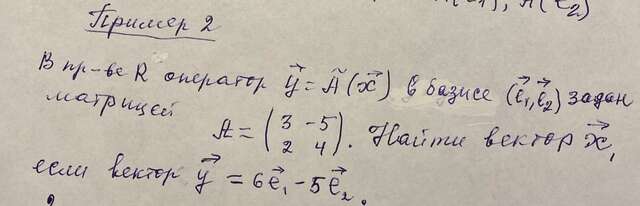 A(e₂)
Пример 2
В пр-ве R оператор y⃗ = Ã(x⃗) в базисе (e⃗₁, e⃗₂) задан
матрицей
A = (3 -5
2 4). Найти вектор x⃗,
если вектор y⃗ = 6e⃗₁ - 5e⃗₂.